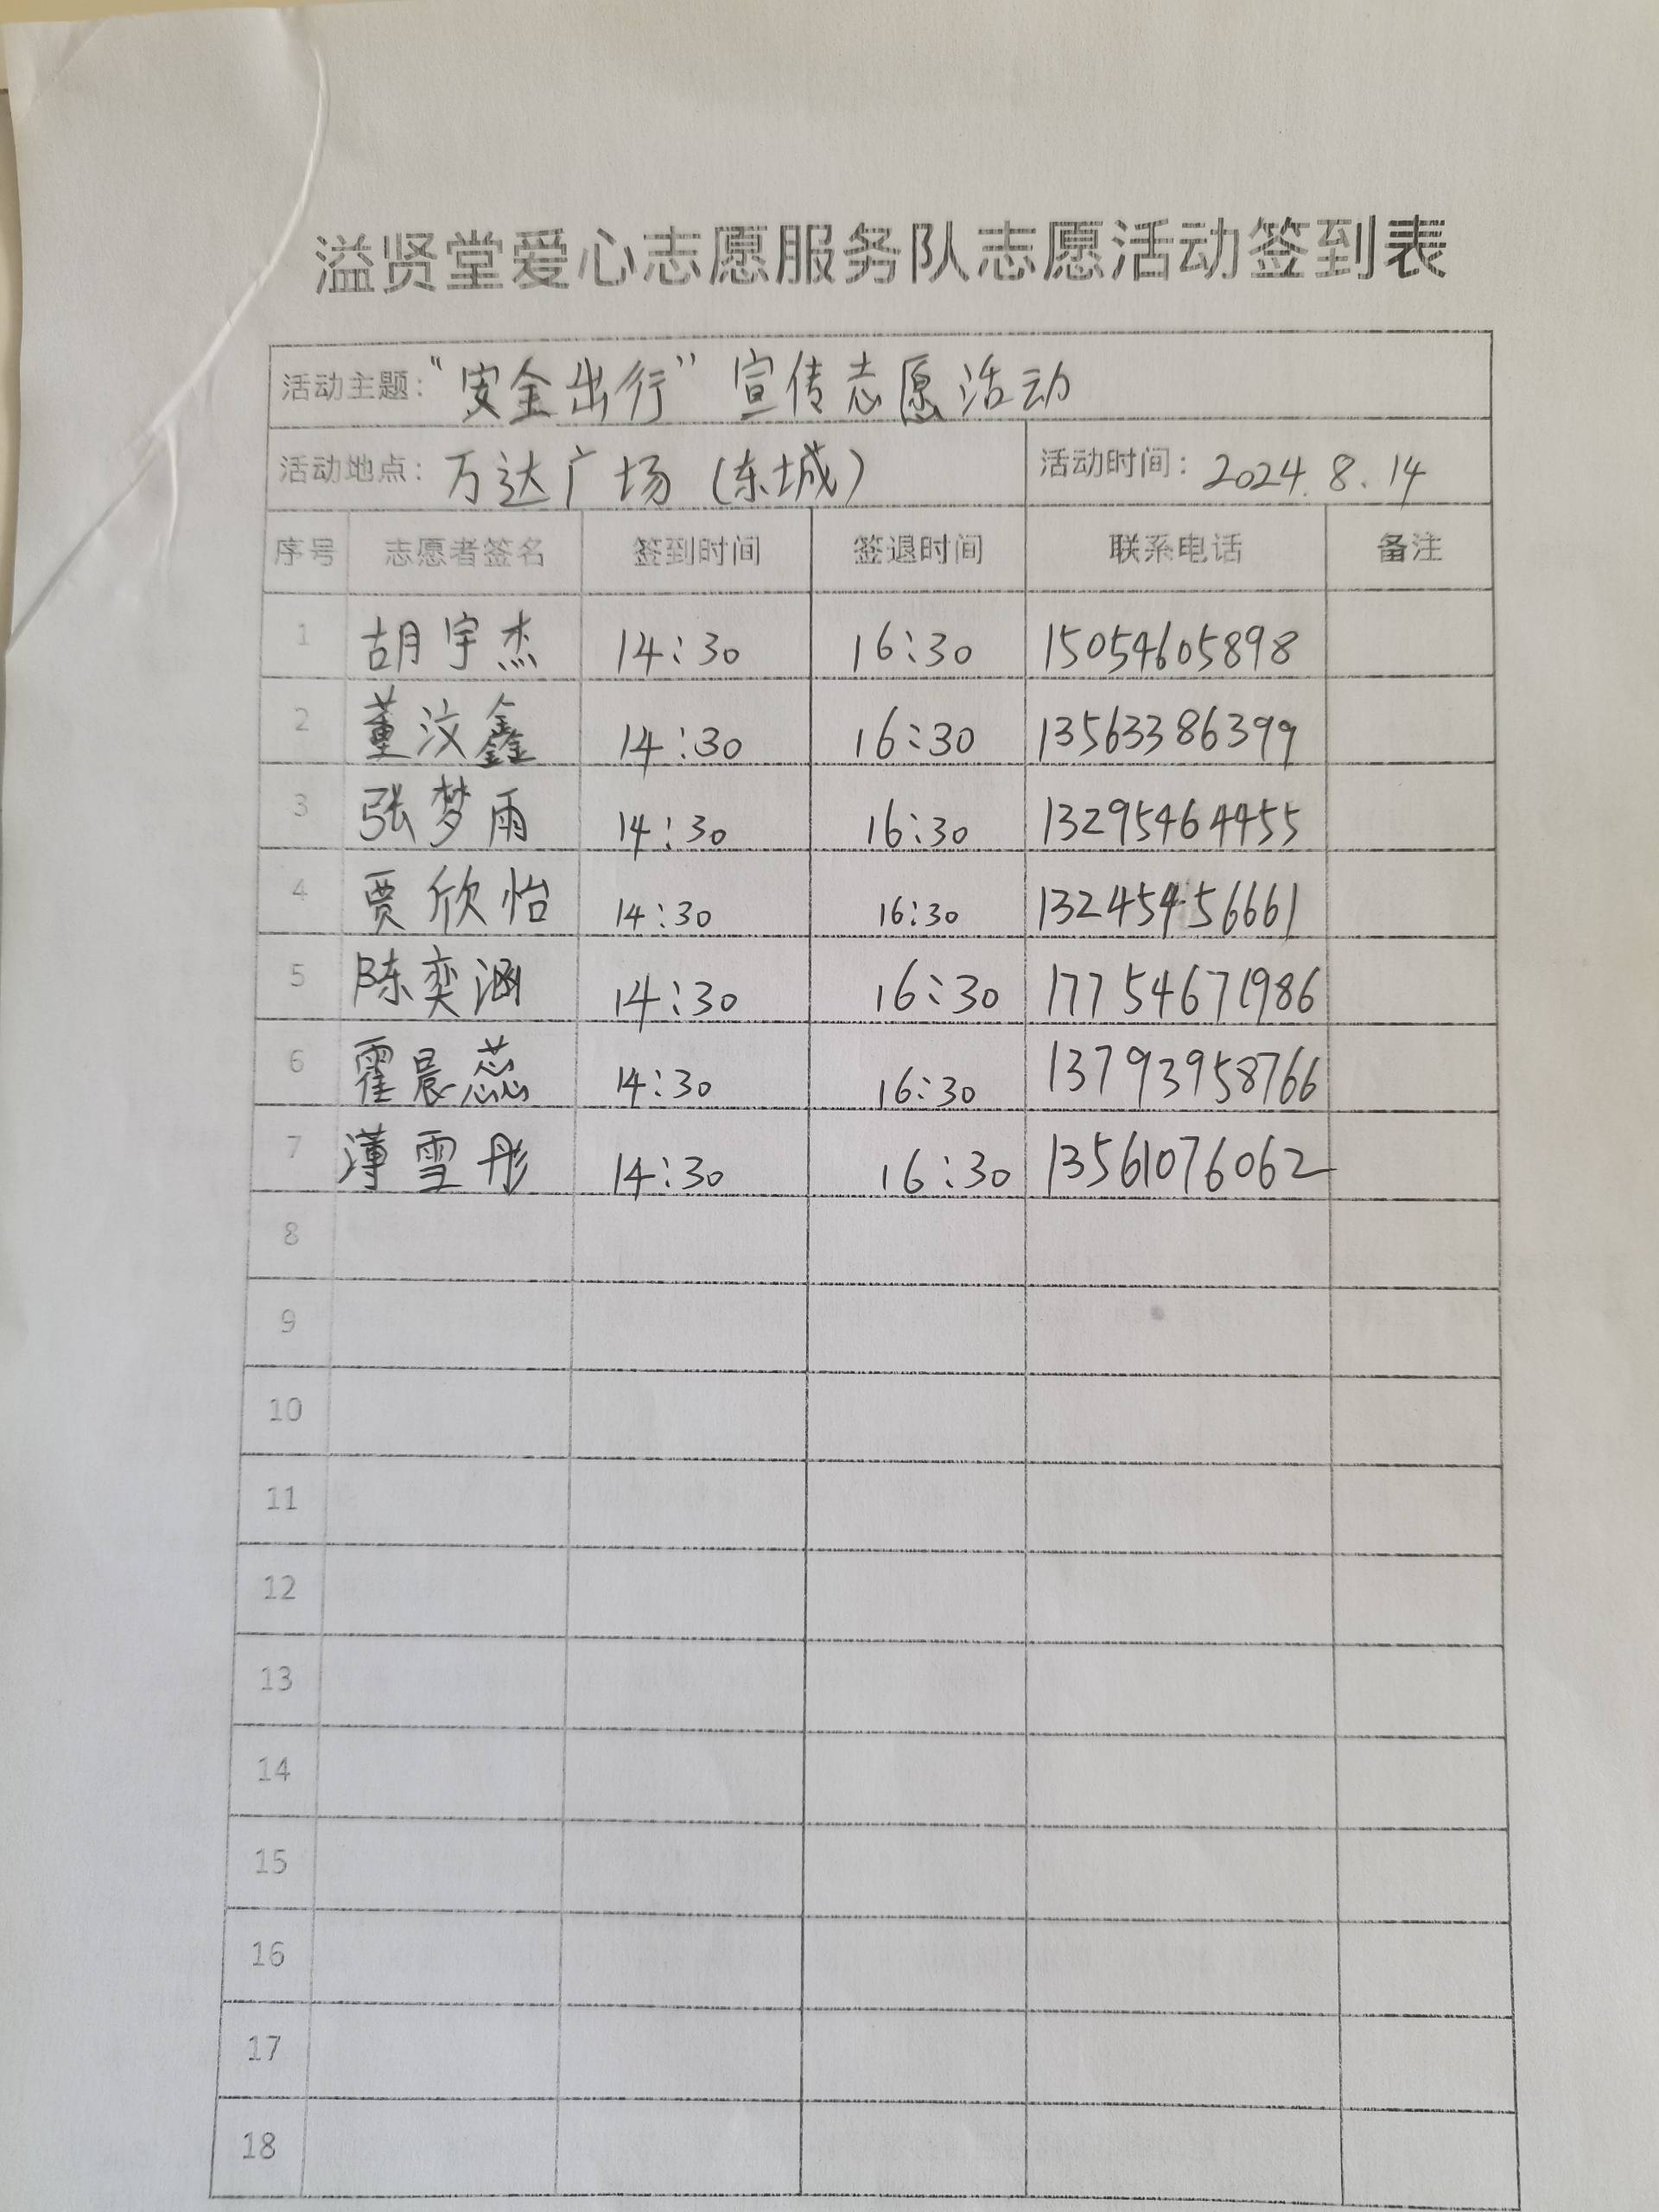 溢贤堂爱心志愿服务队志愿活动签到表
活动主题：“安全出行”宣传志愿活动
活动地点：万达广场（东城） 活动时间：2024.8.14
序号 志愿者签名 签到时间 签退时间 联系电话 备注
1 胡宇杰 14:30 16:30 15054605898
2 董汶鑫 14:30 16:30 13563386399
3 张梦雨 14:30 16:30 13295464455
4 贾欣怡 14:30 16:30 13245456661
5 陈奕涵 14:30 16:30 17754671986
6 霍晨蕊 14:30 16:30 13793958766
7 薄雪彤 14:30 16:30 13561076062
8
9
10
11
12
13
14
15
16
17
18